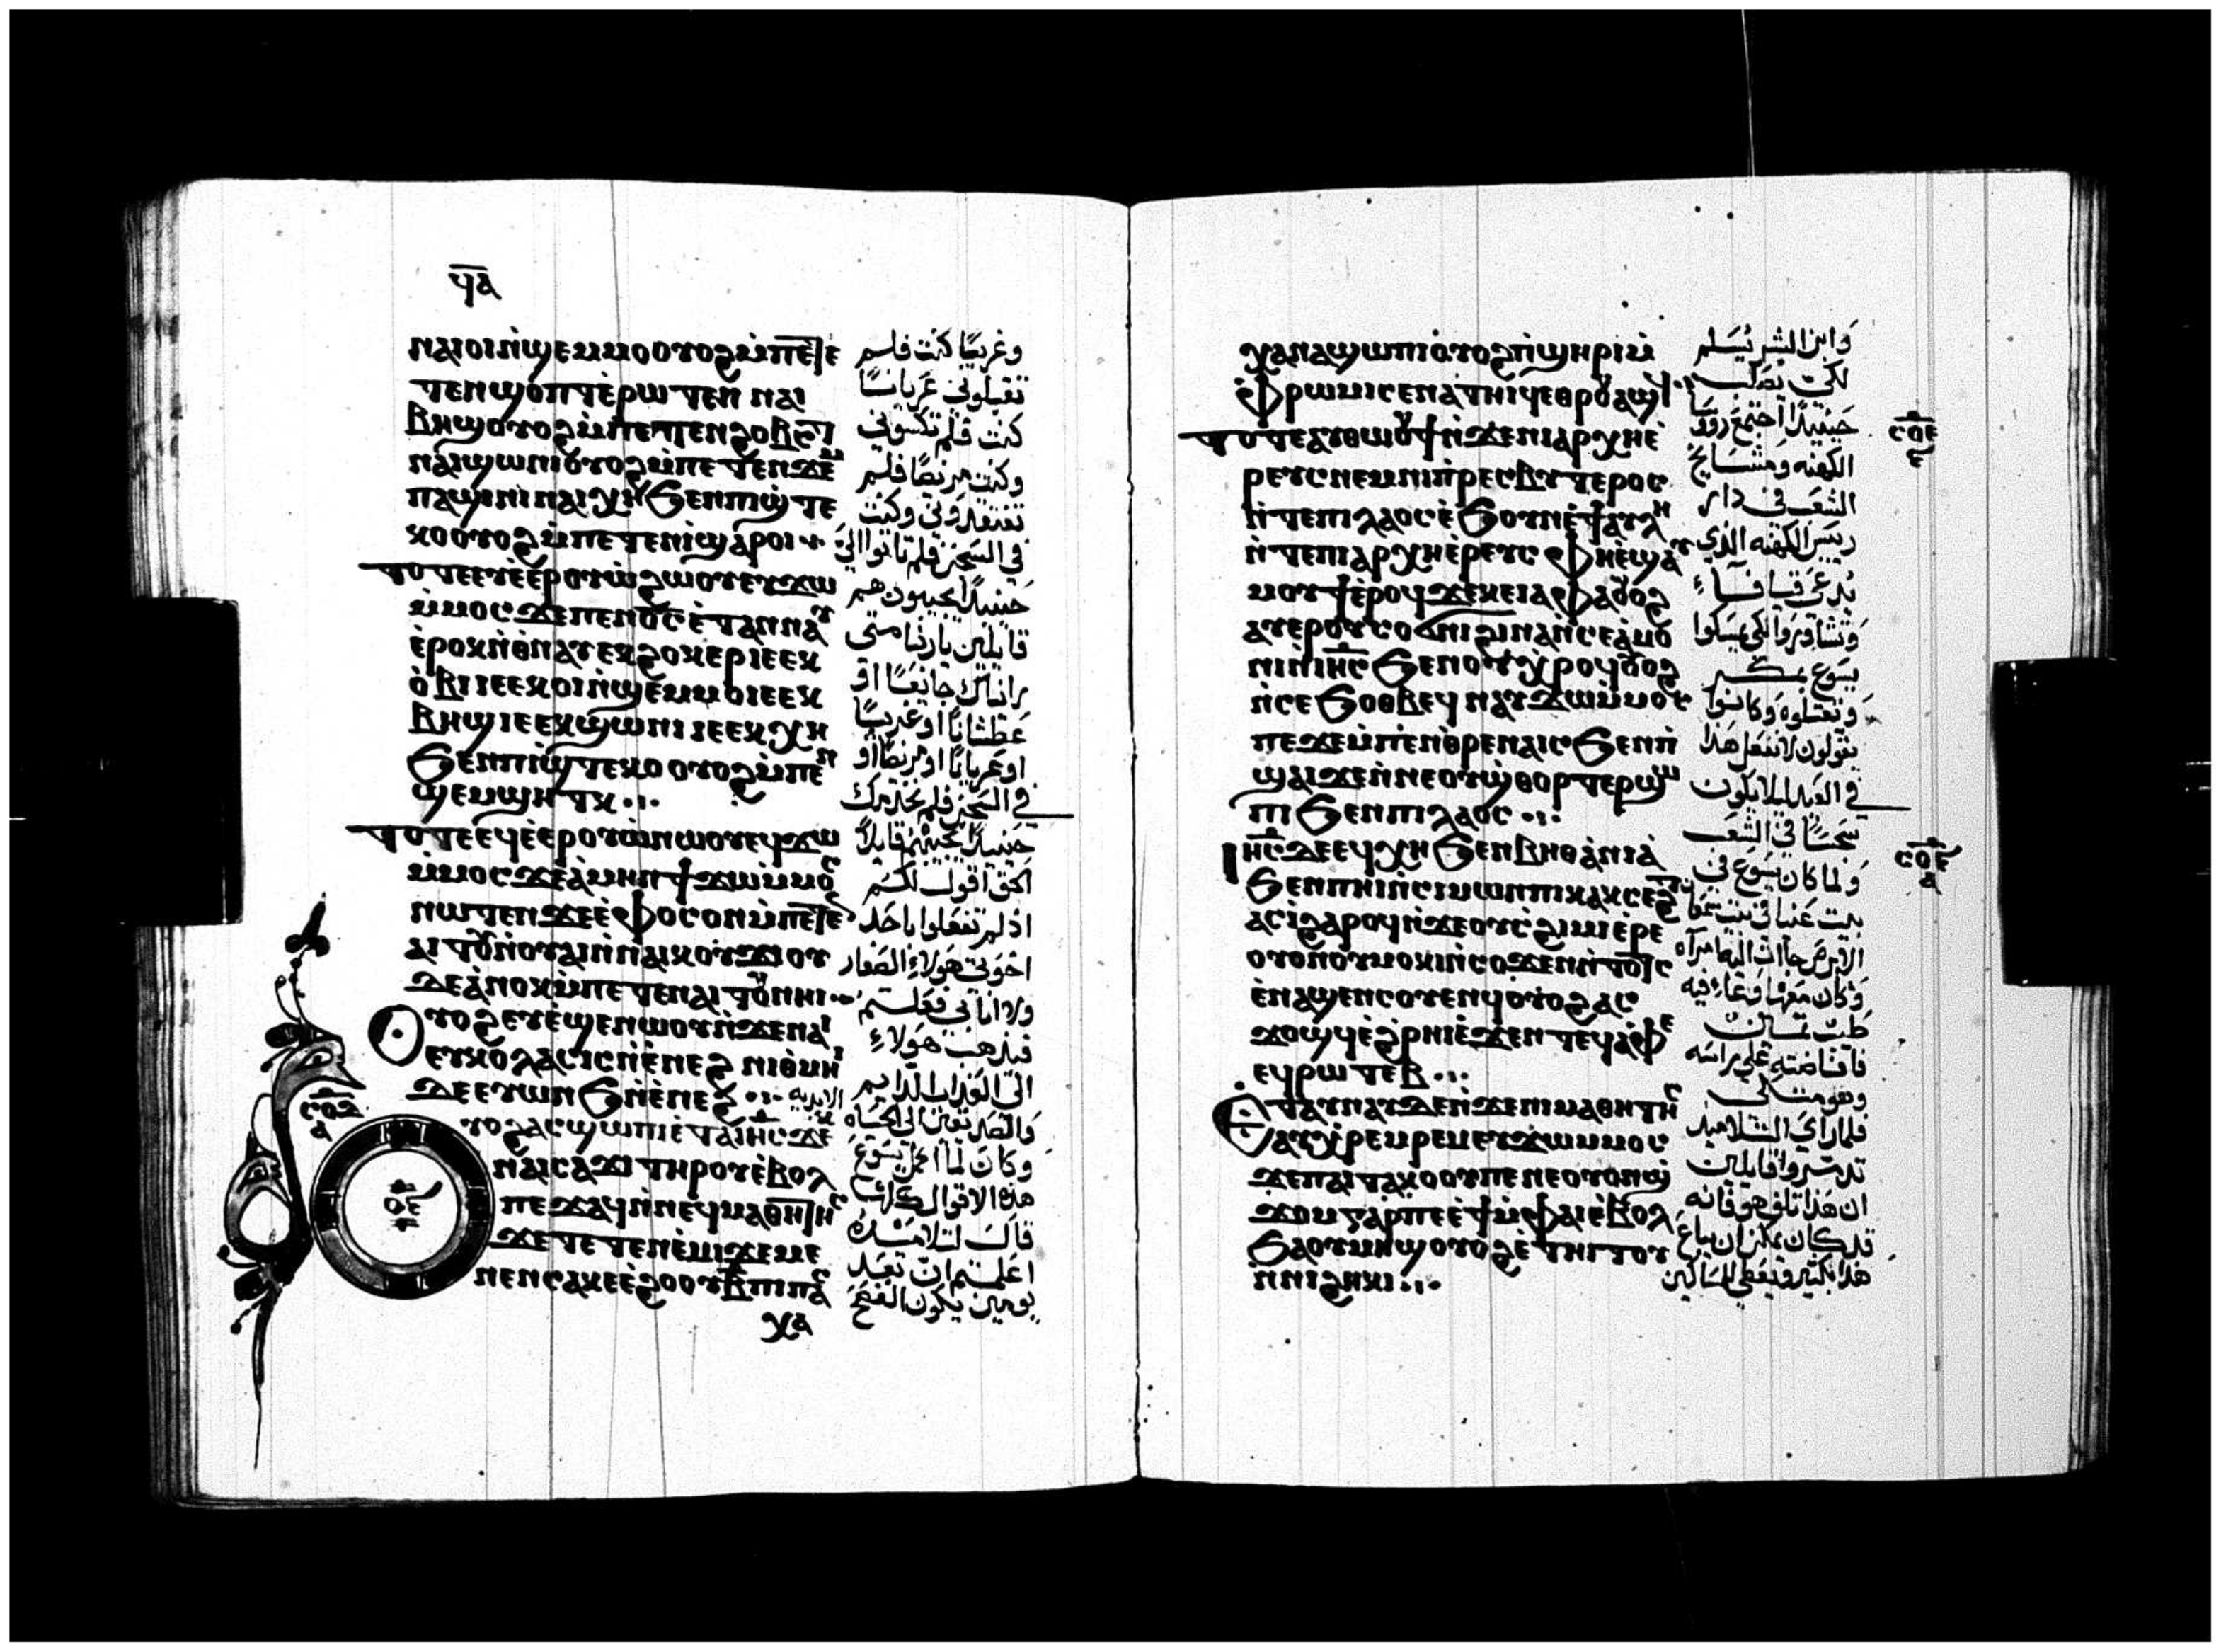 ϥⲁ
ⲛⲁⲓⲟⲓⲛ̀ϣⲉⲙⲙⲟⲟⲩⲟϩⲙ̀ⲡⲉⲧⲉ
ⲧⲉⲛϣⲟⲡⲧ ⲉ̀ⲣⲱⲧⲉⲛ ⲛⲁⲓ
ⲃⲏϣⲟⲩⲟϩⲙ̀ⲡⲉⲧⲉⲛϩⲟⲃⲥⲧ
ⲛⲁⲓϣⲱⲛⲓⲟⲩⲟϩⲙ̀ⲡⲉⲧⲉⲛϫⲉⲙ
ⲡⲁϣⲓⲛⲓ ⲛⲁⲓⲭⲏ ϧⲉⲛⲡⲓϣⲧⲉ
ⲕⲟⲟⲩⲟϩⲙ̀ⲡⲉⲧⲉⲛⲓ̀ϣⲁⲣⲟⲓ
ⲧⲟⲧⲉⲉⲩⲉ̀ⲉⲣⲟⲩⲱ̀ϩⲱⲟⲩⲉⲩϫⲱ
ⲙ̀ⲙⲟⲥϫⲉⲡⲉⲛⲟ̅ⲥ̅ⲉ̀ⲧⲁⲛⲛⲁⲩ
ⲉ̀ⲣⲟⲕⲛ̀ⲑⲛⲁⲩⲉⲕϩⲟⲕⲉⲣⲓⲉⲉⲕ
ⲟ̀ⲃⲓⲓⲉⲉⲕⲟⲓⲛ̀ϣⲉⲙⲙⲟⲓⲉⲉⲕ
ⲃⲏϣⲓⲉⲉⲕϣⲱⲛⲓⲓⲉⲉⲕⲭⲏ
ϧⲉⲛⲡⲓϣⲧⲉⲕⲟⲟⲩⲟϩⲙ̀ⲡⲉⲛ
ϣⲉⲙϣⲏⲧⲕ
ⲧⲟⲧⲉⲉϥⲉ̀ⲉⲣⲟⲩⲱ̀ⲛⲱⲟⲩⲉϥϫⲱ
ⲙ̀ⲙⲟⲥϫⲉⲁ̀ⲙⲏⲛϯϫⲱⲙ̀ⲙⲟⲥ
ⲛⲱⲧⲉⲛϫⲉⲉ̀ⲫⲟⲥⲟⲛⲙ̀ⲡⲉⲧⲉ
ⲁⲓⲧⲟⲩⲛ̀ⲟⲩⲁⲓⲛ̀ⲛⲁⲓⲕⲟⲩϫⲓⲟⲩ
ⲇⲉⲁ̀ⲛⲟⲕⲙ̀ⲡⲉⲧⲉⲛⲁⲓⲧⲟⲩⲛⲏⲓ
Ⲟⲩⲟϩⲉⲩⲉ̀ϣⲉⲛⲱⲟⲩⲛ̀ϫⲉⲛⲁⲓ
ⲉⲩⲕⲟⲗⲁⲥⲓⲥⲛ̀ⲉ̀ⲛⲉϩ ⲛⲓⲑⲙⲏⲓ
ⲇⲉⲉⲩⲱⲛϧⲛ̀ⲉ̀ⲛⲉϩ
ⲥⲟⲇ
ⲁ
ⲟⲉ
ⲩⲟϩⲁⲥϣⲱⲡⲓⲉ̀ⲧⲁⲓⲏ̅ⲥ̅ϫⲉ
ⲛⲁⲓⲥⲁϫⲓ ⲧⲏⲣⲟⲩⲉ̀ⲃⲟⲗ
ⲡⲉϫⲁϥⲛ̀ⲛⲉϥⲙⲁⲑⲏⲧⲏⲥ
ϫⲉⲧⲉⲧⲉⲛⲉ̀ⲙⲓϫⲉⲙⲉ
ⲛⲉⲛⲥⲁⲕⲉⲉ̀ϩⲟⲟⲩⲃ̅ⲡⲓⲡⲁⲥ
ⲭⲁ
وغريبًا كنت فلم
تقبلوني عريانًا
كنت فلم تكسوني
وكنت مريضًا فلم
تفتقدوني وكنت
في السجن فلم تاتوا اليّ
حينيذًا يجيبون هم
قايلين يا ربنا متى
رايناك جايعًا او
عطشانًا او غريبًا
او عريانًا او مريضًا او
في السجن فلم نخدمك
حينيذًا يجيبهم قايلًا
الحق اقول لكم
اذ لم تفعلوا باحد
اخوتي هولاء الصغار
ولا انا بي فعلتم
فيذهب هولاء
الى العذاب الدايم
والصديقين الى الحياه
الابديه
وكان لما اكمل يسوع
هذه الاقوال كلها
قال لتلاميذه
اعلمتم ان بعد
يومين يكون الفصح
ⲭⲁⲛⲁϣⲱⲡⲓⲟ̀ⲩⲟϩⲡ̀ϣⲏⲣⲓⲙ̀
ⲫⲣⲱⲙⲓⲥⲉⲛⲁⲧⲏⲓϥⲉⲑⲣⲟⲩⲁϣϥ
ⲧⲟⲧⲉⲁⲩⲑⲱⲟⲩϯⲛ̀ϫⲉⲛⲓⲁⲣⲭⲏⲉ̀
ⲣⲉⲩⲥⲛⲉⲙⲛⲓⲡ̀ⲣⲉⲥⲃⲩⲧⲉⲣⲟⲥ
ⲛ̀ⲧⲉⲡⲓⲗⲁⲟⲥⲉ̀ϧⲟⲩⲛⲉ̀ϯⲁⲩⲗⲏ
ⲛ̀ⲧⲉⲡⲓⲁⲣⲭⲏⲉ̀ⲣⲉⲩⲥ ⲫⲏⲉ̀ϣⲁⲩ
ⲙⲟⲩϯⲉ̀ⲣⲟϥϫⲉⲕⲉⲓⲁⲫⲁⲟⲩⲟϩ
ⲁⲩⲉⲣⲟⲩⲥⲟϭⲛⲓϩⲓⲛⲁⲛ̀ⲥⲉⲁ̀ⲙⲟ
ⲛⲓⲛ̀ⲓⲏ̅ⲥ̅ ϧⲉⲛⲟⲩⲭⲣⲟϥⲟⲩⲟϩ
ⲛ̀ⲥⲉϧⲟⲑⲃⲉϥ ⲛⲁⲩϫⲱⲙ̀ⲙⲟⲥ
ⲡⲉϫⲉⲙ̀ⲡⲉⲛⲑⲣⲉⲛⲁⲓⲥ ϧⲉⲛⲡ̀
ϣⲁⲓϫⲉⲛ̀ⲛⲉⲟⲩϣ̀ⲑⲟⲣⲧⲉⲣϣⲱ
ⲡⲓ ϧⲉⲛⲡⲓⲗⲁⲟⲥ
ⲓⲏ̅ⲥ̅ⲇⲉⲉϥⲭⲏ ϧⲉⲛⲃⲏⲑⲁ̀ⲛⲓⲁ̀
ϧⲉⲛⲡⲏⲓⲛ̀ⲥⲓⲙⲱⲛⲡⲓⲕⲁⲕⲥⲉϩⲧ
ⲁⲥⲓ̀ϩⲁⲣⲟϥⲛ̀ϫⲉⲟⲩⲥ̀ϩⲓⲙⲓⲉ̀ⲣⲉ
ⲟⲩⲟⲛⲟⲩⲙⲟⲕⲓⲛ̀ⲥⲟϫⲉⲛⲛ̀ⲧⲟⲧⲥ
ⲉ̀ⲛⲁϣⲉⲛⲥⲟⲩⲉⲛϥⲟⲩⲟϩⲁⲥ
ϫⲟϣϥⲉ̀ϩ̀ⲣⲏⲓⲉ̀ϫⲉⲛⲧⲉϥⲁ̀ⲫⲉ
ⲉϥⲣⲱⲧⲉⲃ
Ⲉⲧⲁⲩⲛⲁⲩⲇⲉⲛ̀ϫⲉⲛⲓⲙⲁⲑⲏⲧⲏⲥ
ⲁⲩⲭⲣⲉⲙⲣⲉⲙⲉⲩϫⲱⲙⲙⲟⲥ
ϫⲉⲡⲁⲓⲧⲁⲕⲟⲟⲩⲡⲉⲛⲉⲟⲩⲟⲛϣ̀
ϫⲟⲙⲅⲁⲣⲡⲉⲉ̀ϯⲙ̀ⲫⲁⲓⲉ̀ⲃⲟⲗ
ϧⲁⲟⲩⲙⲏϣⲟⲩⲟϩⲉ̀ⲧⲏⲓⲧⲟⲩ
ⲛ̀ⲛⲓϩⲏⲕⲓ
وابن البشر يُسلم
لكي يصلب
حينيذًا اجتمع روسا
الكهنه ومشايخ
الشعب في دار
رييس الكهنه الذي
يُدعى قيافا
وتشاوروا لكي يمسكوا
يسوع بمكر
ويقتلوه وكانوا
يقولون لا نفعل هذا
في العيد ليلا يكون
سجسًا في الشعب
ولما كان يسوع في
بيت عنيا في بيت سمعان
الابرص جاات اليه امراه
وكان معها وعاء فيه
طيب غالي
فافاضته على راسه
وهو متكي
فلما راي التلاميذ
تذمروا قايلين
ان هذا تلف هو فانه
قد كان يمكن ان يباع
هذا بكثير ويعطي للمساكين
ⲥⲟⲉ
ⲋ
ⲥⲟⲋ
ⲁ